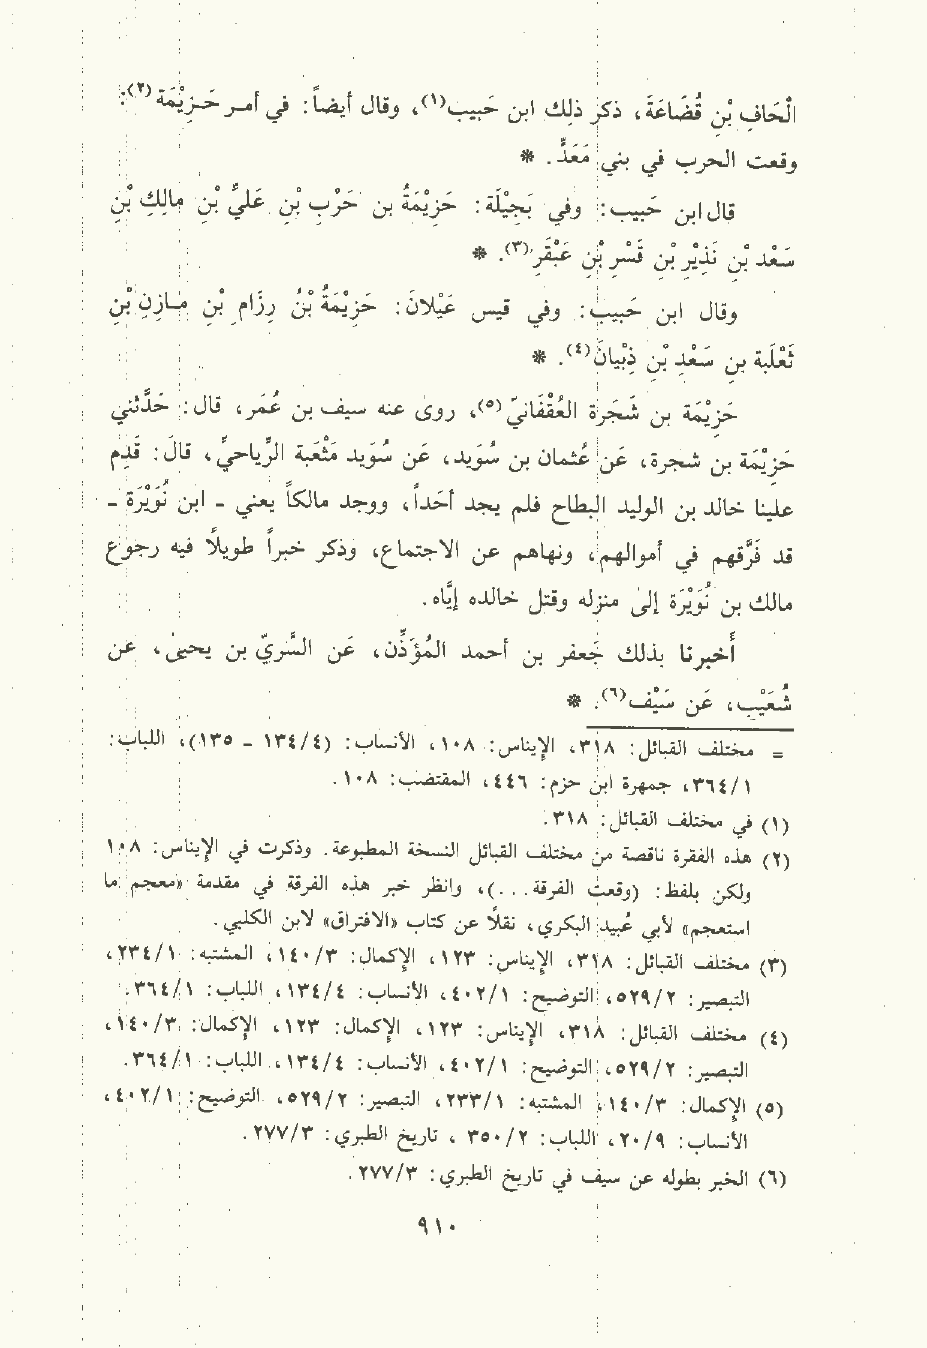 الْحَافِ بْنِ قُضَاعَةَ، ذكر ذلك ابن حَبيب(١)، وقال أيضاً: في أمر حَزِيْمَة(٢):
وقعت الحرب في بني مَعَدٍّ. *
قال ابن حَبيب: وفي بَجِيْلَة: حَزِيْمَةُ بن حَرْبِ بْنِ عَليِّ بْنِ مالِكِ بْنِ
سَعْد بْنِ نَذِيْرِ بْنِ قَسْرِ بْنِ عَبْقَرِ(٣). *
وقال ابن حَبيب: وفي قيس عَيْلانَ: حَزِيْمَةُ بْنُ رِزَام بْنِ مَازِنِ بْنِ
ثَعْلَبة بنِ سَعْدِ بْنِ ذِبْيانَ(٤). *
حَزِيْمَة بن شَجَرة العُقْفَانيّ(٥)، روى عنه سيف بن عُمَر، قال: حَدَّثني
حَزِيْمَة بن شجرة، عَن عُثمان بن سُوَيد، عَن سُوَيد مَثْعَبة الرِّياحيِّ، قالَ: قَدِم
علينا خالد بن الوليد البطاح فلم يجد أحَداً، ووجد مالكاً يعني - ابن نُوَيْرَة -
قد فَرَّقهم في أموالهم، ونهاهم عن الاجتماع، وذكر خبراً طويلاً فيه رجوع
مالك بن نُوَيْرَة إلى منزله وقتل خالده إيَّاه.
أَخبرنا بذلك جَعفر بن أحمد المُؤَذِّن، عَن السَّريّ بن يحيىٰ، عن
شُعَيْبٍ، عَن سَيْف(٦). *
= مختلف القبائل: ٣١٨، الإيناس: ١٠٨، الأنساب: (١٣٤/٤ - ١٣٥)، اللباب:
٣٦٤/١، جمهرة ابن حزم: ٤٤٦، المقتضب: ١٠٨.
(١) في مختلف القبائل: ٣١٨.
(٢) هذه الفقرة ناقصة من مختلف القبائل النسخة المطبوعة. وذكرت في الإيناس: ١٠٨
ولكن بلفظ: (وقعت الفرقة...)، وانظر خبر هذه الفرقة في مقدمة «معجم ما
استعجم» لأبي عُبيد البكري، نقلاً عن كتاب «الافتراق» لابن الكلبي.
(٣) مختلف القبائل: ٣١٨، الإيناس: ١٢٣، الإكمال: ١٤٠/٣، المشتبه: ٢٣٤/١،
التبصير: ٥٢٩/٢، التوضيح: ٤٠٢/١، الأنساب: ١٣٤/٤، اللباب: ٣٦٤/١.
(٤) مختلف القبائل: ٣١٨، الإيناس: ١٢٣، الإكمال: ١٢٣، الإكمال: ١٤٠/٣،
التبصير: ٥٢٩/٢، التوضيح: ٤٠٢/١، الأنساب: ١٣٤/٤، اللباب: ٣٦٤/١.
(٥) الإكمال: ١٤٠/٣، المشتبه: ٢٣٣/١، التبصير: ٥٢٩/٢، التوضيح: ٤٠٢/١،
الأنساب: ٢٠/٩، اللباب: ٣٥٠/٢، تاريخ الطبري: ٢٧٧/٣.
(٦) الخبر بطوله عن سيف في تاريخ الطبري: ٢٧٧/٣.
٩١٠